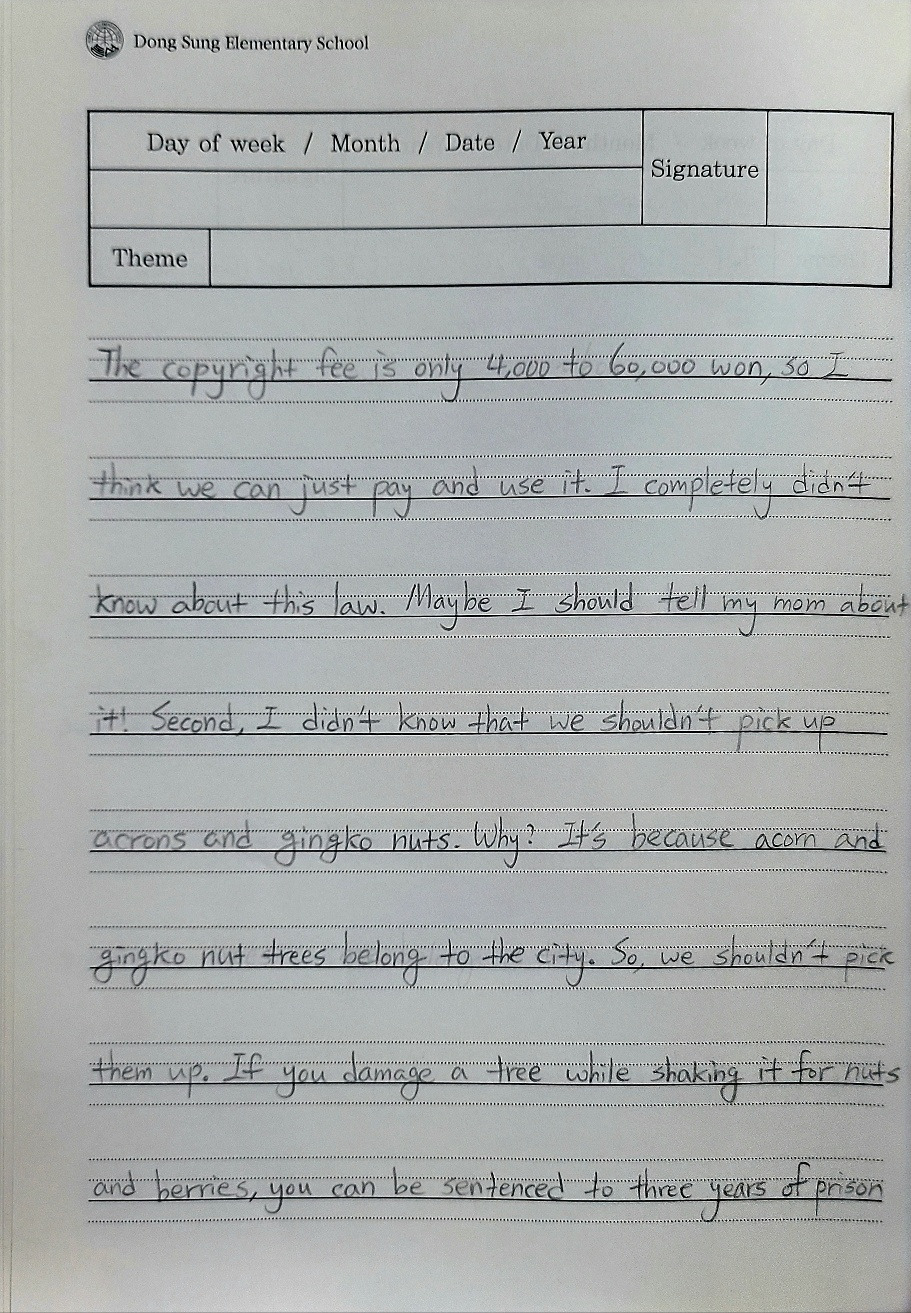 Dong Sung Elementary School
Day of week / Month / Date / Year
Signature
Theme
The copyright fee is only 4,000 to 60,000 won, so I
think we can just pay and use it. I completely didn't
know about this law. Maybe I should tell my mom about
it! Second, I didn't know that we shouldn't pick up
acrons and gingko nuts. Why? It's because acorn and
gingko nut trees belong to the city. So, we shouldn't pick
them up. If you damage a tree while shaking it for nuts
and berries, you can be sentenced to three years of prison